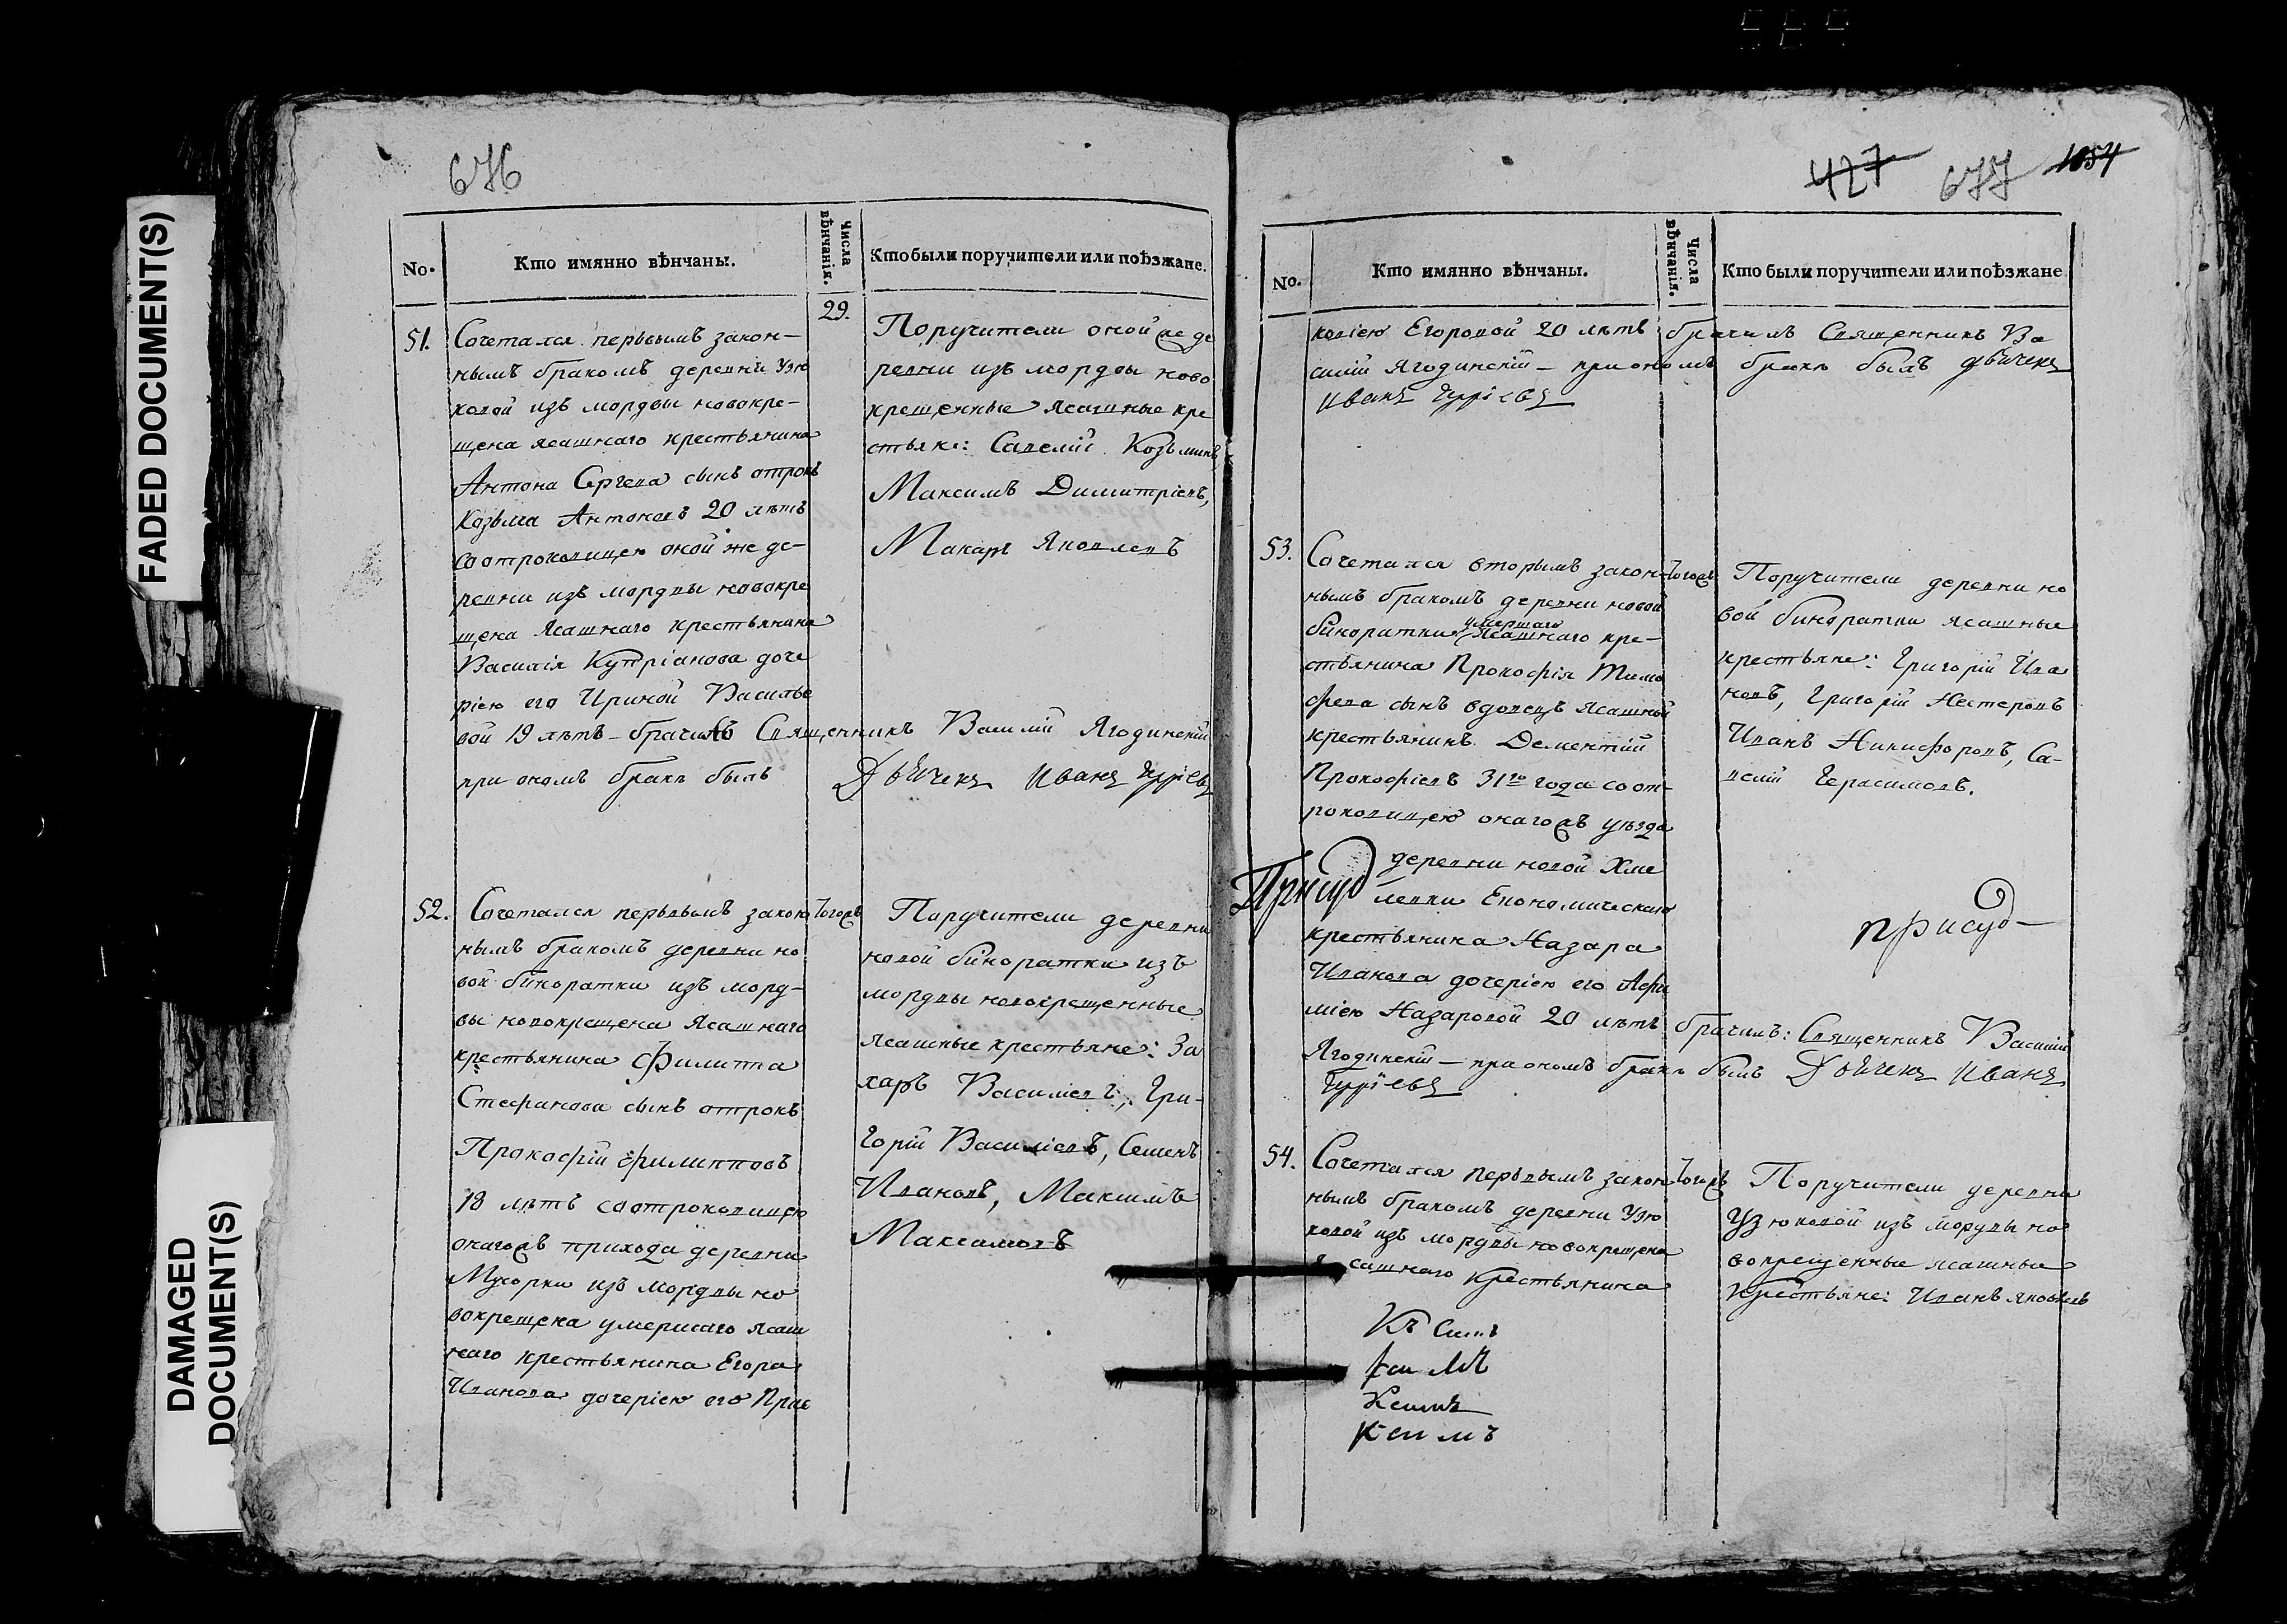 FADED DOCUMENT(S)
DAMAGED
DOCUMENT(S)
676
No.
Кто имянно вѣнчаны.
Числа
вѣнчанія.
Кто были поручители или поѣзжане.
51.
Сочетался первымъ закон-
нымъ бракомъ деревни Узю
ковой изъ мордвы новокре-
щена ясашнаго крестьянина
Антона Сергеева сынъ отрокъ
Козьма Антоновъ 20 лѣтъ
соотроковицею оной же де-
ревни изъ мордвы новокре
щена ясашнаго крестьянина
Василія Купріанова доче
рію его Ириной Василье
вой 19 лѣтъ - брачилъ Священникъ Василій Ягодинскій
при ономъ бракѣ былъ Дьячекъ Иванъ Гурьевъ
29.
Поручители оной же де
ревни изъ мордвы ново
крещенные ясашные кре
стьяне: Савелій Козьминъ
Максимъ Димитріевъ,
Макаръ Яковлевъ
52.
Сочетался первымъ закон
нымъ бракомъ деревни но
вой биноратки изъ морд-
вы новокрещена ясашнаго
крестьянина Филиппа
Стефанова сынъ отрокъ
Прокофій Филипповъ
18 лѣтъ соотроковицею
онагожъ прихода деревни
Мусорки изъ мордвы но
вокрещена умершаго ясаш
наго крестьянина Егора
Иванова дочерію его Прас
тогожъ
Поручители деревни
новой бинoратки изъ
мордвы новокрещенные
ясашные крестьяне: За
харъ Василіевъ, Гри-
горій Василіевъ, Семенъ
Ивановъ, Максимъ
Максимовъ
427 677 1054
No.
Кто имянно вѣнчаны.
Числа
вѣнчанія.
Кто были поручители или поѣзжане
ковіею Егоровой 20 лѣтъ брачилъ Священникъ Ва
силій Ягодинскій - при ономъ бракѣ былъ дьячекъ
Иванъ Гурьевъ
53.
Сочетался вторымъ закон-
нымъ бракомъ деревни новой
умершаго
бинoратки ясашнаго кре-
стьянина Прокофія Тимо
феева сынъ вдовецъ ясашной
крестьянинъ Дементій
Прокофіевъ 31го года соот-
роковицею онагожъ уѣзда
деревни новой Хме
левки Економическаго
крестьянина Назара
Иванова дочерію его
міею Назаровой 20 лѣтъ брачилъ: Священникъ Василій
Ягодинскій - при ономъ бракѣ былъ Дьячекъ Иванъ
Гурьевъ
Присуд
тогожъ
Поручители деревни но
вой бинoратки ясашные
крестьяне: Григорій Ива
новъ, Григорій Нестеровъ
Иванъ Никифоровъ, Са-
велій Герасимовъ.
присуд-
54.
Сочетался первымъ закон
нымъ бракомъ деревни Узю
ковой изъ мордвы новокрещена
ясашнаго крестьянина
тогожъ
Поручители деревни
Узюковой изъ мордвы но
вокрещенные ясашные
крестьяне: Иванъ Яковлевъ
Къ симъ